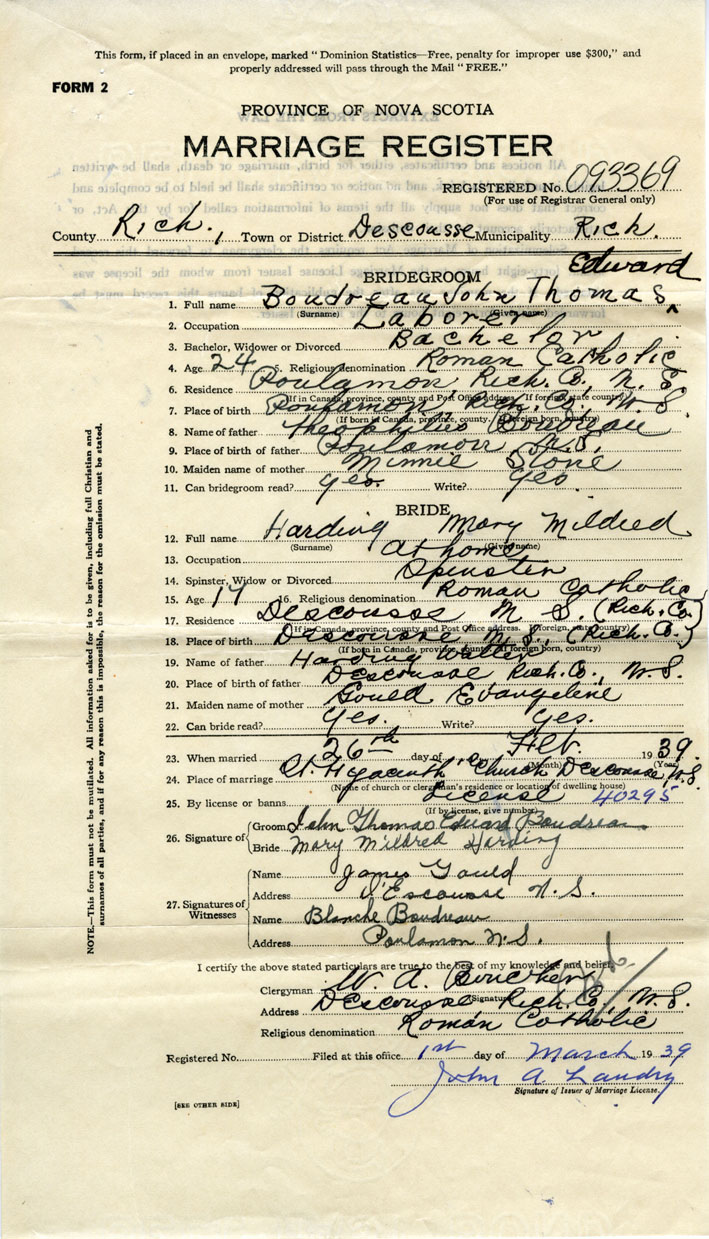 This form, if placed in an envelope, marked "Dominion Statistics—Free, penalty for improper use $300," and
properly addressed will pass through the Mail "FREE."
FORM 2
PROVINCE OF NOVA SCOTIA
MARRIAGE REGISTER
REGISTERED No. 093369
(For use of Registrar General only)
County Rich., Town or District Descousse Municipality Rich.
BRIDEGROOM Edward
1. Full name Boudreau John Thomas ^
(Surname) (Given name)
2. Occupation Laborer
3. Bachelor, Widower or Divorced Bachelor
4. Age 24 5. Religious denomination Roman Catholic
6. Residence Poulamon, Rich. Co., N. S.
(If in Canada, province, county and Post Office address. If foreign state country)
7. Place of birth Poulamon, Rich. Co., N. S.
(If born in Canada, province, county. If foreign born, country)
8. Name of father Theophilus Boudreau
9. Place of birth of father Poulamon, N.S.
10. Maiden name of mother Minnie Stone
11. Can bridegroom read? yes. Write? yes
BRIDE
12. Full name Harding Mary Mildred
(Surname) (Given name)
13. Occupation at home
14. Spinster, Widow or Divorced Spinster
15. Age 16. Religious denomination Roman Catholic
17. Residence Descousse N S (Rich. Co.)
(If in Canada, province, county and Post Office address. If foreign, country)
18. Place of birth Descousse N.S., (Rich. Co.)
(If born in Canada, province, county. If foreign born, country)
19. Name of father Harding Walter
20. Place of birth of father Descousse Rich. Co., N. S.
21. Maiden name of mother Gould Evangeline
22. Can bride read? yes. Write? yes.
23. When married 26th day of Feb. 1939.
(Month) (Year)
24. Place of marriage St. Hyacinth Church Descousse, N.S.
(Name of church or clergyman's residence or location of dwelling house)
25. By license or banns License 40295
(If by license, give number)
26. Signature of Groom John Thomas Edward Boudreau
Bride Mary Mildred Harding
27. Signatures of Witnesses Name James Gould
Address D'Escousse N.S.
Name Blanche Boudreau
Address Poulamon N.S.
I certify the above stated particulars are true to the best of my knowledge and belief.
Clergyman W. A.
(Signature)
Address Descousse Rich. Co., N.S.
Religious denomination Roman Catholic
Registered No. Filed at this office 1st day of March 1939
John A Landry
Signature of Issuer of Marriage License.
[SEE OTHER SIDE]
NOTE.—This form must not be mutilated. All information asked for is to be given, including full Christian and
surnames of all parties, and if for any reason this is impossible, the reason for the omission must be stated.